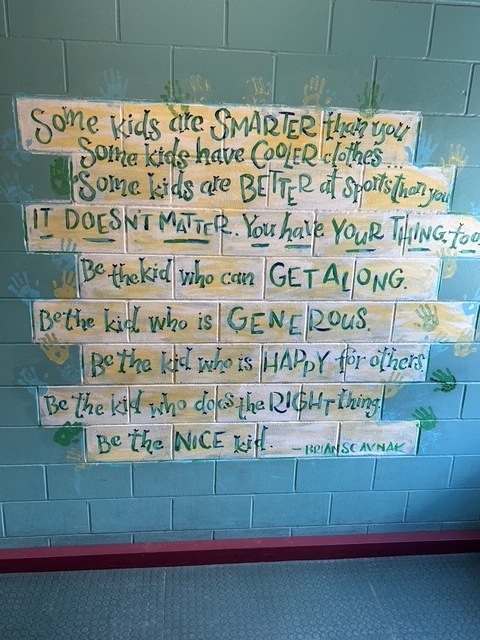 Some kids are SMARTER than you
Some kids have COOLER clothes...
Some kids are BETTER at sports than you
IT DOESN'T MATTER. You have YOUR THING, too
Be the kid who can GET ALONG.
Be the kid who is GENEROUS.
Be the kid who is HAPPY for others
Be the kid who does the RIGHT thing.
Be the NICE kid.
- BRIAN SCAVNAK